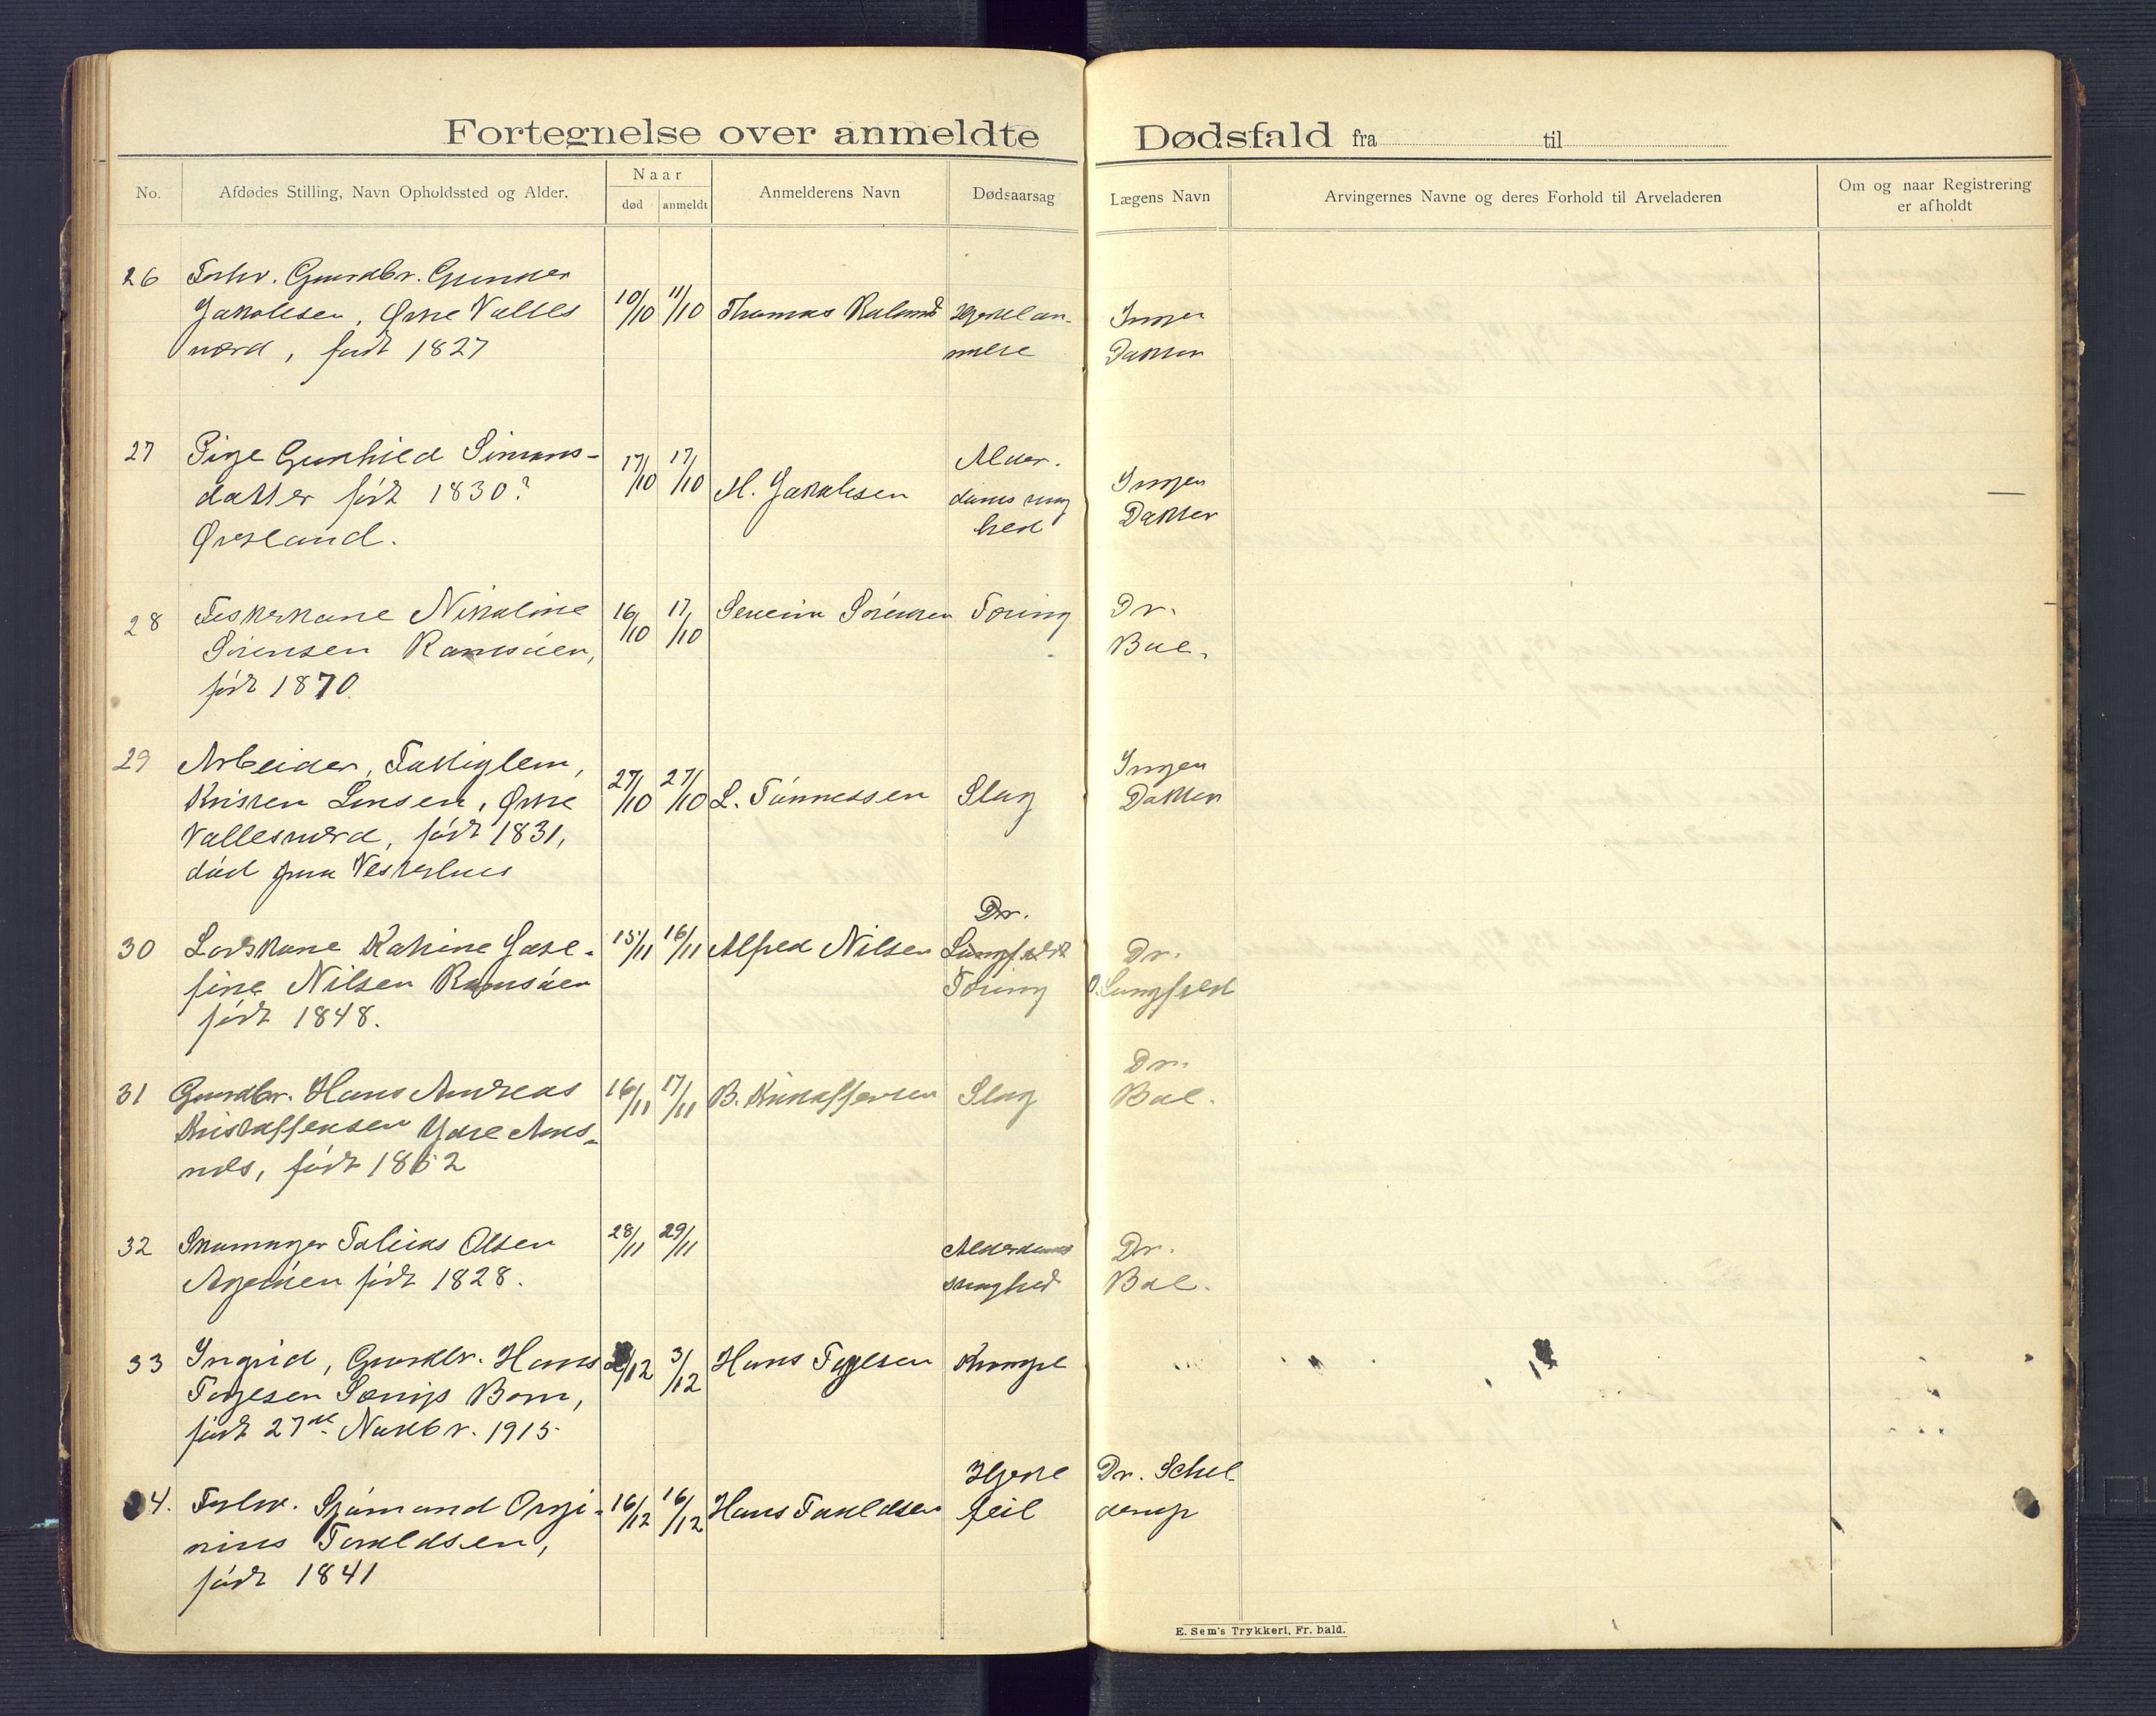 Fortegnelse over anmeldte Dødsfald fra til
No.
Afdødes Stilling, Navn Opholdssted og Alder.
Naar
død
anmeldt
Anmelderens Navn
Dødsaarsag
Lægens Navn
Arvingernes Navne og deres Forhold til Arveladeren
Om og naar Registrering
er afholdt
26
Forhv. Gaardbr. Gunder
Jakobsen, Øvre Valles
værd, født 1827
10/10
11/10
Thomas
Ingen
Doktor
27
Pige Gunhild Simons-
datter født 1830?
Øvreland.
17/10
17/10
M. Jakobsen
Alder-
doms svag
hed
Ingen
Doktor
28
Fiskerkone Nikoline
Sørensen Ramsøen,
født 1870
16/10
17/10
Severin Sørensen
Tæring
Dr.
Boe.
29
Arbeider, Fattiglem,
Kristen Larsen, Øvre
Vallesværd, født 1831,
død paa Vesterhus
27/10
27/10
L. Tønnessen
Slag
Ingen
Doktor
30
Lodskone Katrine Jose-
fine Nilsen Ramsøen
født 1848.
15/11
16/11
Alfred Nilsen
Dr.
Lungfeldt
Tæring
Dr.
Lungfeld
31
Gaardbr. Hans Andreas
Kristoffersen Ydre Aas-
næs, født 1852
16/11
17/11
B. Kristoffersen
Slag
Dr.
Boe.
32
Skomager Tobias Olsen
Agerøen født 1828.
28/11
29/11
Alderdoms
svaghed
Dr.
Boe.
33
Ingrid, Gaardbr. Hans
Tagesen Sænigs Barn,
født 27de Novbr. 1915.
2/12
3/12
Hans Tagesen
Krampe
34.
Forhv. Sjømand Orgi-
nius Taraldsen,
født 1841
16/12
16/12
Hans Taraldsen
Hjerte
feil
Dr. Schel-
derup
E. Sem's Trykkeri, Fr. hald.